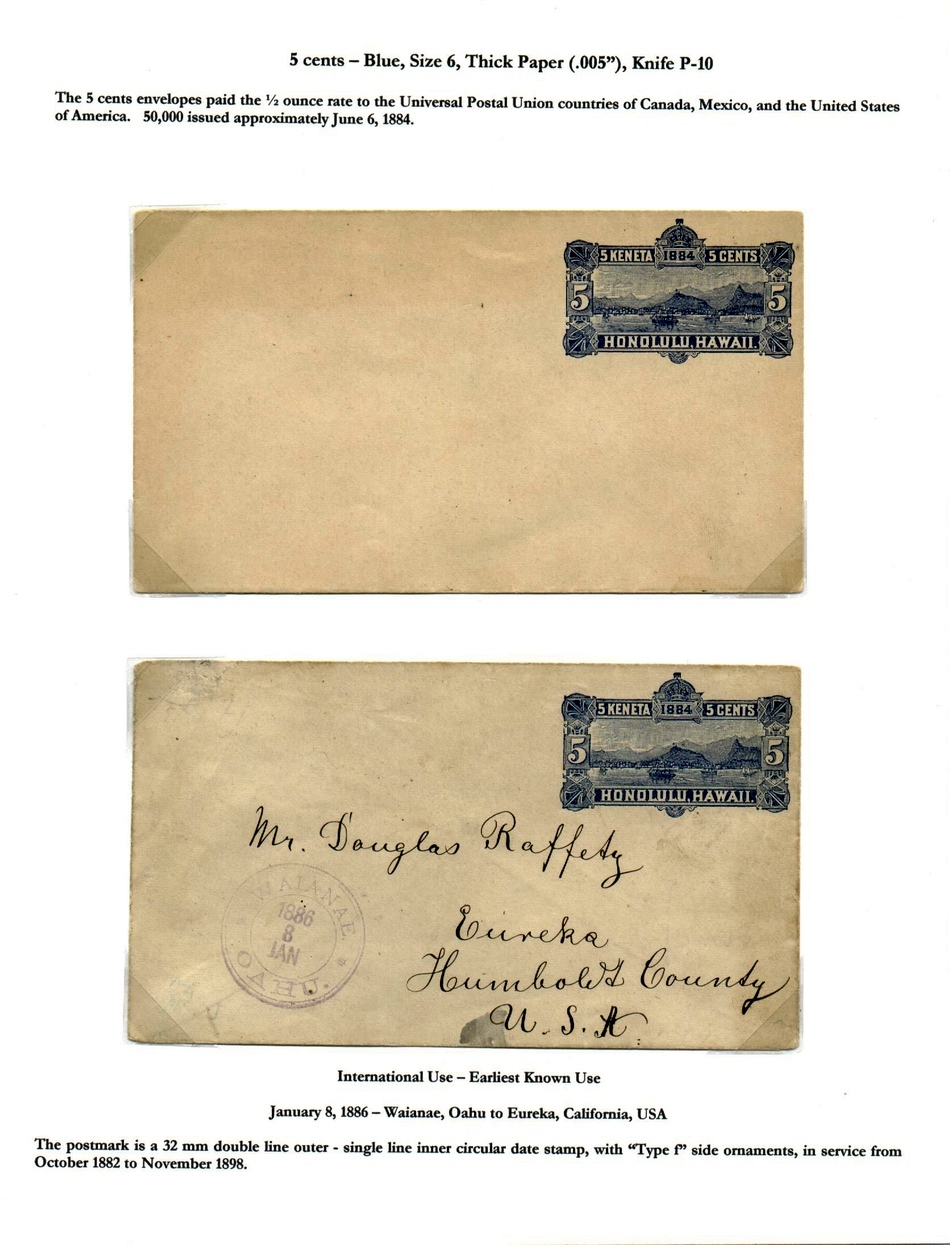 5 cents – Blue, Size 6, Thick Paper (.005”), Knife P-10
The 5 cents envelopes paid the ½ ounce rate to the Universal Postal Union countries of Canada, Mexico, and the United States
of America. 50,000 issued approximately June 6, 1884.
5 KENETA 1884 5 CENTS
5 5
HONOLULU, HAWAII.
5 KENETA 1884 5 CENTS
5 5
HONOLULU, HAWAII.
Mr. Douglas Raffety
WAIANAE.
1886
8
JAN
OAHU.
Eureka
Humboldt County
U. S. A.
International Use – Earliest Known Use
January 8, 1886 – Waianae, Oahu to Eureka, California, USA
The postmark is a 32 mm double line outer - single line inner circular date stamp, with “Type f” side ornaments, in service from
October 1882 to November 1898.